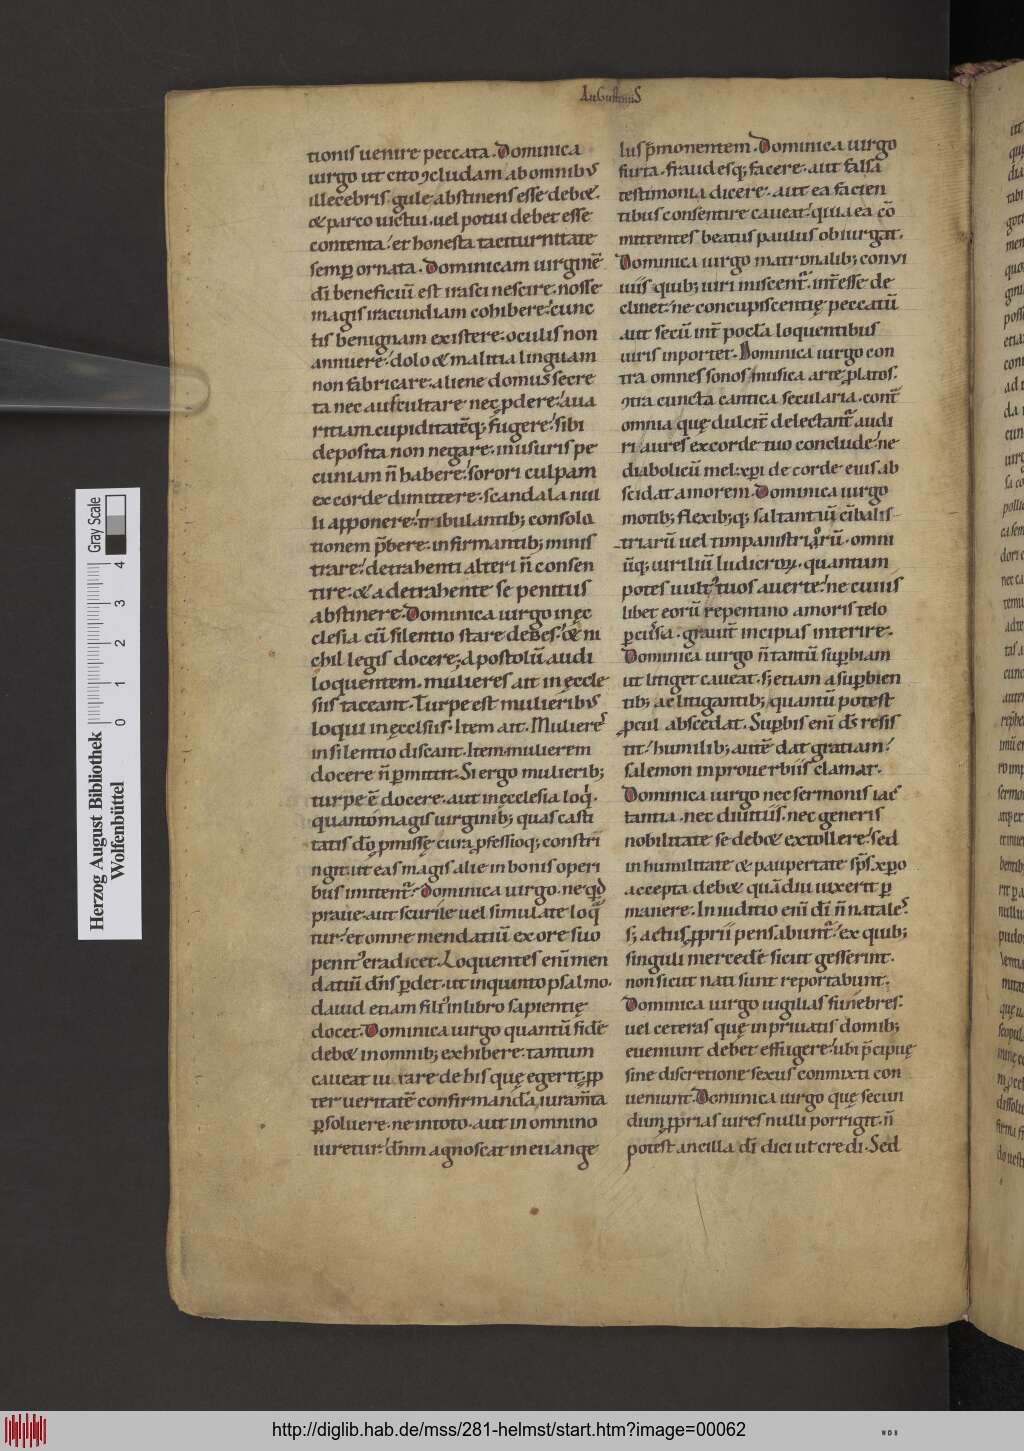 AuGustinuS
tionis uenire peccata. Dominica
uirgo ut cito ꝯcludam ab omnibꝰ
illecebris gule abstinens esse debet.
& parco uictui. uel potui debet esse
contenta. et honesta taciturnitate
semp̱ ornata. Dominicam uirginē
dī beneficiū est irasci nescire. nosse
magis iracundiam cohibere. cunc
tis benignam existere. oculis non
annuere. dolo & malitia linguam
non fabricare. aliene domus secre
ta nec auscultare nec ꝓdere. aua
ritiam cupiditatēq; fugere. sibi
deposita non negare. in usuris pe
cuniam n̄ habere. sorori culpam
ex corde dimittere. scandala nul
li apponere. tribulantib; consola
tionem p̄bere. infirmantib; minis
trare. detrahenti alteri n̄ consen
tire. & a detrahente se penitus
abstinere. Dominica uirgo in ęc
clesia cū silentio stare debes. & ni
chil legis docere. apostolū audi
loquentem. mulieres ait in ęccle
siis taceant. Turpe est mulieribꝰ
loqui in ęcclesiis. Item ait. Mulieres
in silentio discant. Item mulierem
docere n̄ ꝑmittit. Si ergo mulierib;
turpe ē docere. aut in ęcclesia loq̄.
quanto magis uirginib; quas casti
tatis dō ꝓmissę cura ꝓfessioq; constri
ngit. ut eas magis alie in bonis operi
bus imitent͛. Dominica uirgo. ne qd̄
praue aut scurile uel simulate loq̄
tur. et omne mendatiū ex ore suo
penit᷒ eradicet. Loquentes enī men
datiū dn̄s ꝑdet. ut in quinto psalmo.
dauid etiam fili᷒ in libro sapientię
docet. Dominica uirgo quantū fidē
debet in omnib; exhibere. tantum
caueat iurare de his quę egerit. ꝓp
ter ueritatē confirmandā. iuram̄ta
ꝑsoluere. ne in toto. aut in omnino
iuretur. dn̄m agnoscat in euange
lus p̄monentem. Dominica uirgo
furta. fraudesq; facere. aut falsa
testimonia dicere. aut ea facien
tibus consentire caueat. quia ea cō
mittentes beatus paulus obiurgat.
Dominica uirgo matronalib; conui
uiis quib; uiri miscent͛. int̄esse de
clinet. ne concupiscentię peccatū
aut secū int̄ pocla loquentibus
uiris inportet. Dominica uirgo con
tra omnes sonos musica arte ꝓlatos.
ꝯtra cuncta cantica secularia. cont̄
omnia quę dulcit̄ delectant͛ audi
ri aures ex corde tuo conclude. ne
diabolicū mel. xpi de corde eius ab
scidat amorem. Dominica uirgo
motib; flexib;q; saltantiū cībalis
triarū uel timpanistriarū. omni
ūq; uiriliū ludicroꝝ. quantum
potes uult᷒ tuos auerte. ne cuius
libet eorū repentino amoris telo
ꝑcussa. grauit̄ incipias interire.
Dominica uirgo n̄ tantū suꝑbiam
ut litiget caueat. s; etiam a suꝑbien
tib; ac litigantib; quantū potest
ꝓcul abscedat. Suꝑbis enī ds̄ resis
tit. humilib; autē dat gratiam.
salemon in prouerbiis clamat.
Dominica uirgo nec sermonis iac
tantia. nec diuitiis. nec generis
nobilitate se debet extollere. sed
in humilitate & paupertate sp̄s xp̄o
accepta debet quādiu uixerit ꝑ
manere. In iuditio enī dī n̄ natales
s; actus ꝓprii pensabunt͛. ex quib;
singuli mercedē sicut gesserint.
non sicut nati sunt reportabunt.
Dominica uirgo uigilias funebres.
uel ceteras quę in priuatis domib;
eueniunt debet effugere. ubi p̄cipuę
sine discretione sexus conmixti con
ueniunt. Dominica uirgo quę secun
dum ꝓprias uires nulli porrigit. n̄
potest ancilla dī dici ut credi. Sed
Herzog August Bibliothek
Wolfenbüttel
Gray Scale
0 1 2 3 4
http://diglib.hab.de/mss/281-helmst/start.htm?image=00062